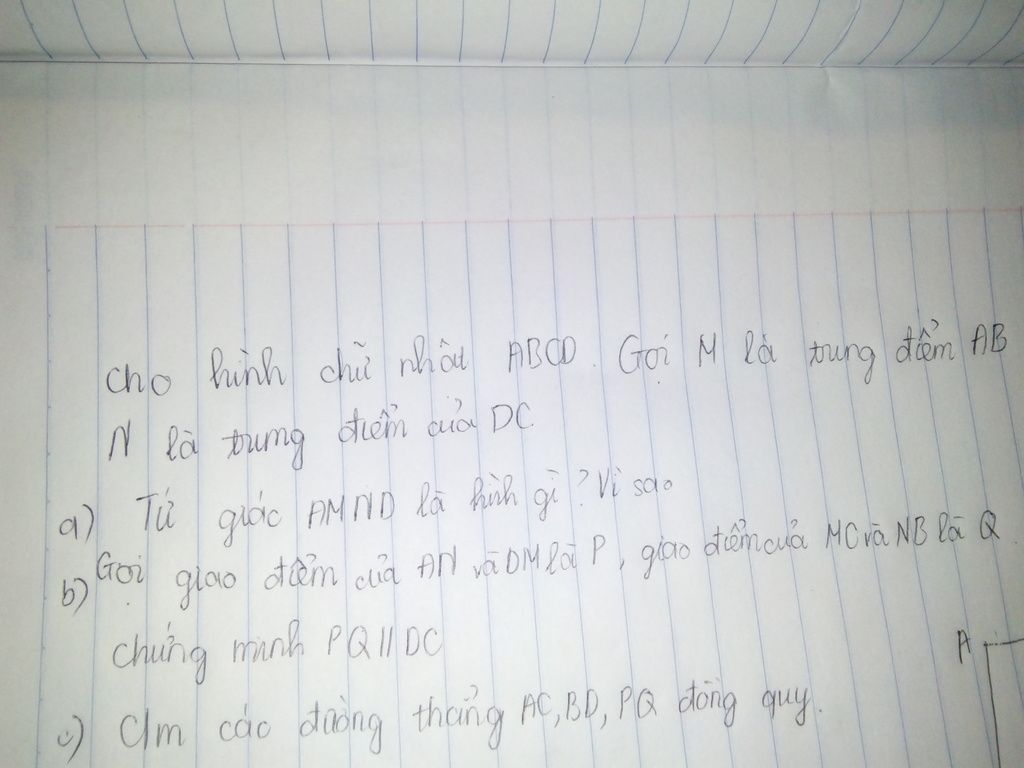 cho hình chữ nhâu ABCD. Gọi M là trung điểm AB
N là trung điểm của DC
a) Tứ giác AMND là hình gì? Vì sao
b) Gọi giao điểm của AN và DM là P, giao điểm của MC và NB là Q.
chứng minh PQ // DC
c) CIm các đường thẳng AC, BD, PQ đồng quy.
A